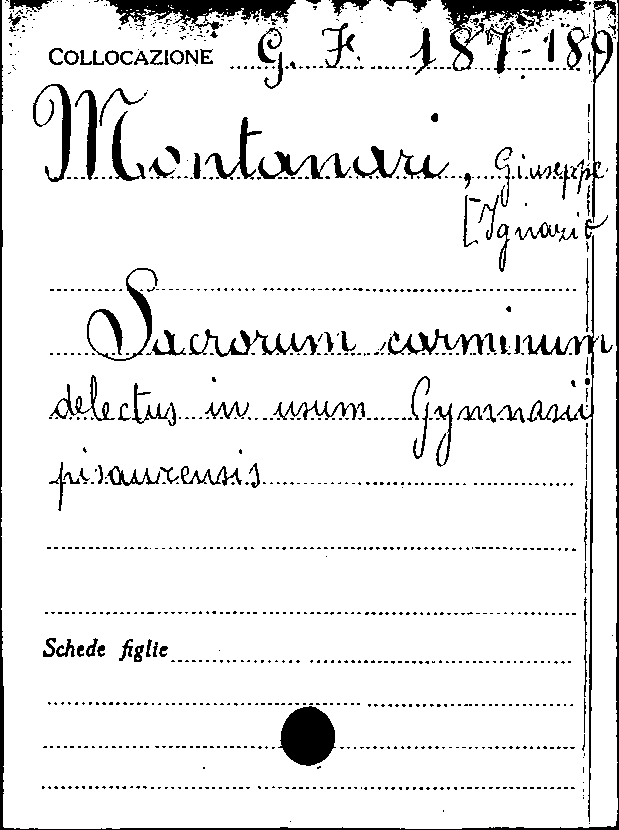 COLLOCAZIONE G. F. 187-189
Montanari, Giuseppe
[Ignazio
Sacrorum carminum
delectus in usum Gymnasii
pisaurensis
Schede figlie